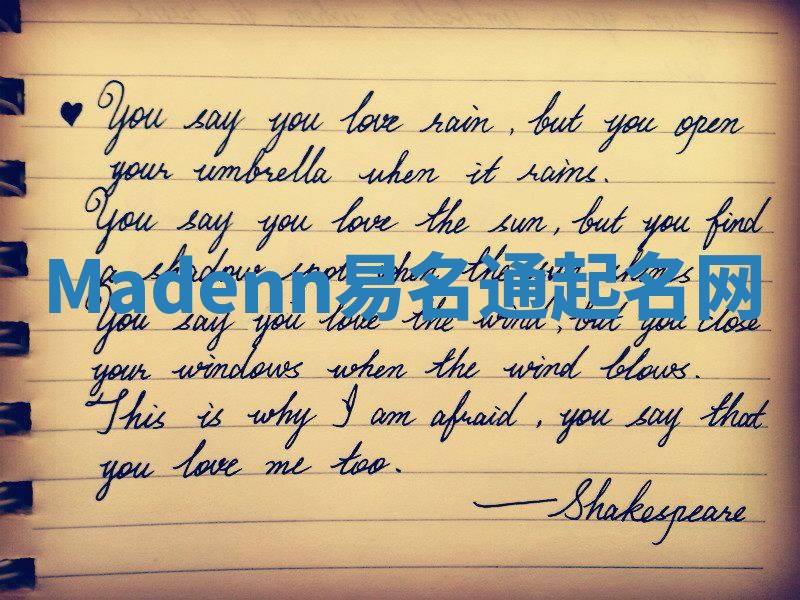 ♥ You say you love rain, but you open
your umbrella when it rains.
You say you love the sun, but you find
a shadow spot when the sun shines
Madenn易名通起名网
You say you love the wind, but you close
your windows when the wind blows.
This is why I am afraid, you say that
you love me too.
— Shakespeare